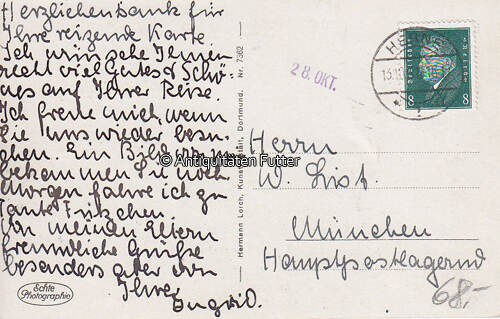 Herzlichen Dank für
Ihre reizende Karte
Ich wünsche Ihnen
recht viel Gutes & Schö-
nes auf Ihrer Reise.
Ich freue mich, wenn
Sie uns wieder besu-
chen. Ein Bild von
bekommen Sie noch
Morgen fahre ich zu
Tante Frizchen.
Von meinen Eltern
freundliche Grüße
besonders aber von
Ihrer
Ingrid.
Echte
Photographie
Hermann Lorch, Kunstanstalt, Dortmund. Nr. 7362
© Antiquitäten Futter
28. OKT.
8 8
Herrn
W. List.
München
Hauptpostlagernd
68,-